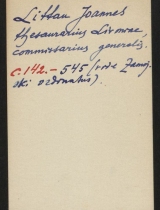 Littau Joannes
thesaurarius Livoniae,
commissarius generalis.
C. 142. – 545 (vide Zamoj-
ski ordonatus).